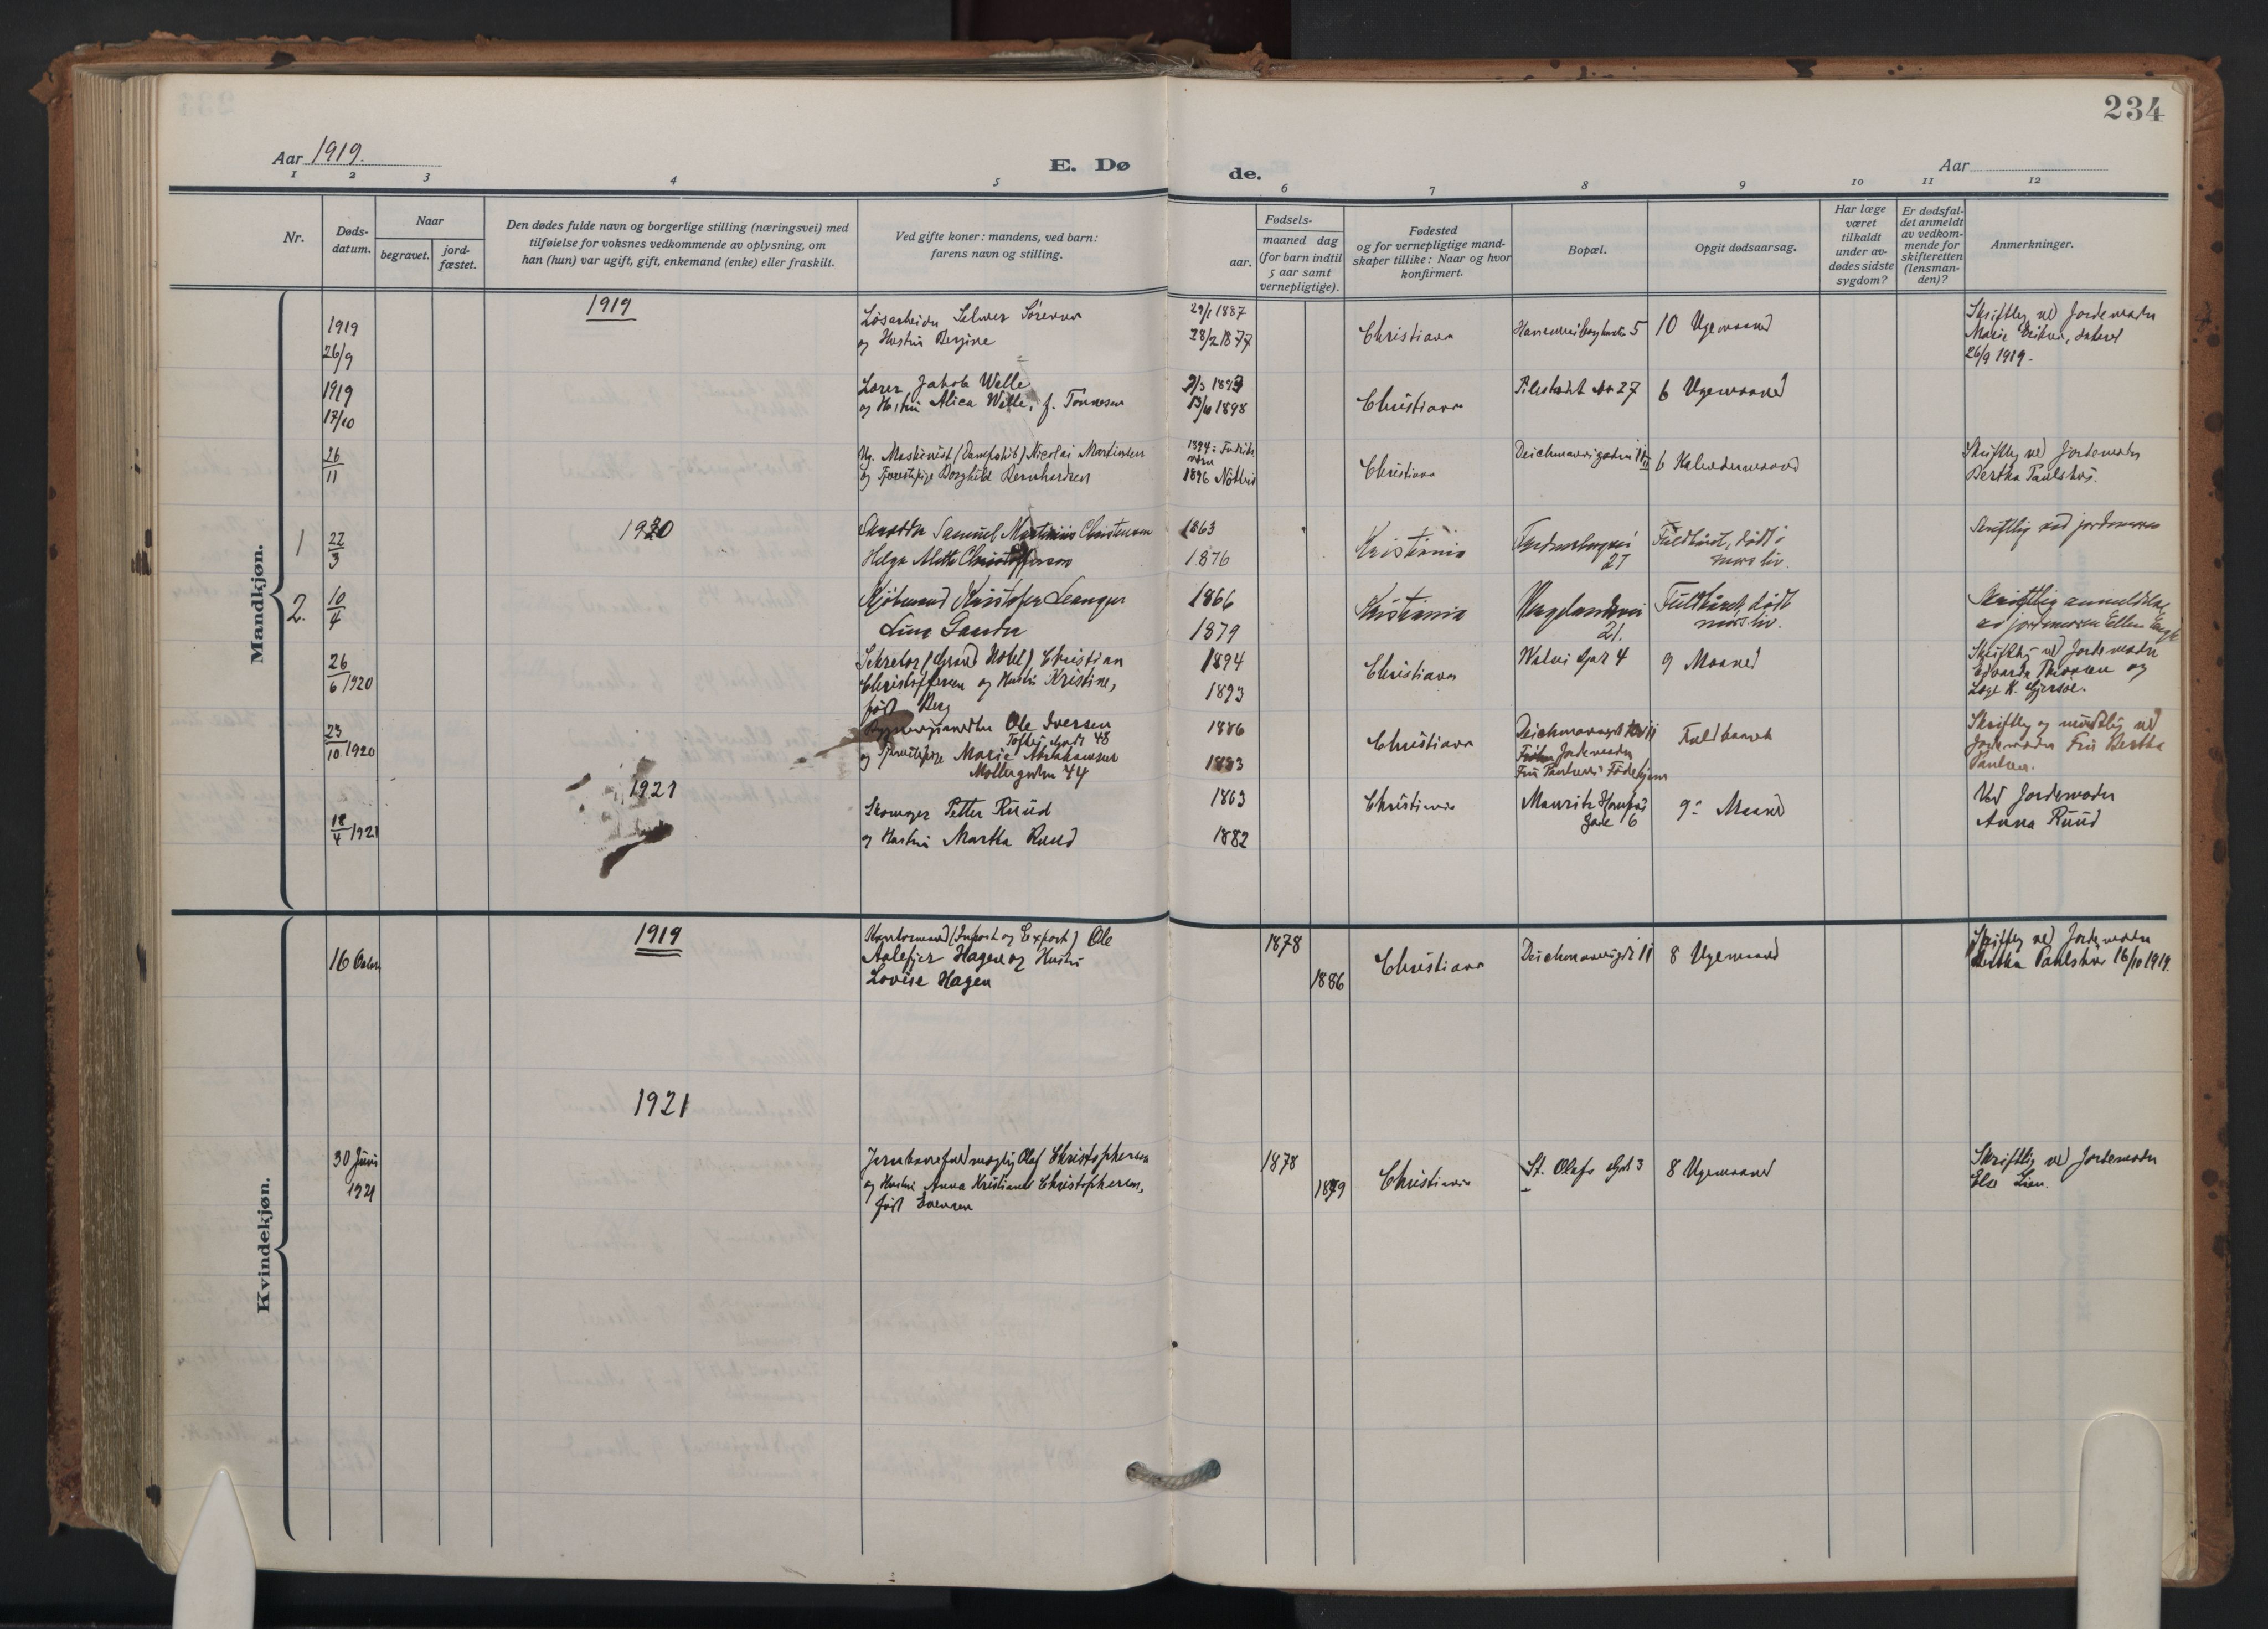 234
Aar 1919.
E. Døde.
Aar
1 2 3 4 5 6 7 8 9 10 11 12
Nr.
Døds-
datum.
Naar
begravet.
jord-
fæstet.
Den dødes fulde navn og borgerlige stilling (næringsvei) med
tilføielse for voksnes vedkommende av oplysning, om
han (hun) var ugift, gift, enkemand (enke) eller fraskilt.
Ved gifte koner: mandens, ved barn:
farens navn og stilling.
Fødsels-
aar.
maaned dag
(for barn indtil
5 aar samt
vernepligtige).
Fødested
og for vernepligtige mand-
skaper tillike: Naar og hvor
konfirmert.
Bopæl.
Opgit dødsaarsag.
Har læge
været
tilkaldt
under av-
dødes sidste
sygdom?
Er dødsfal-
det anmeldt
av vedkom-
mende for
skifteretten
(lensman-
den)?
Anmerkninger.
Mandkjøn.
1919
1919
26/9
Løsarbeider Selmer Sørensen
og Hustru Bergine
29/1 1887
28/2 1877
Christiania
5
10 Ugemaaned
Skriftlig ved Jordemoder
Marie Eriksen, dateret
26/9 1919.
1919
17/10
Lærer Jakob Welle
og Hustru Alica Welle, f. Tønnesen
9/3 1893
13/6 1898
Christiania
Pilestrædet No 27
6 Ugemaaned
26/11
Ug. Maskinist (Dampskib) Nicolai Martinsen
og Tjenestepige Borghild Bernhardsen
1894: Fredrik-
1896 Nøtterø
Christiania
Deichmannsgaden 11
6 Kalendermaaned
Skriftlig ved Jordemoder
Bertha Paulshus.
1920
1
22/3
Samuel Martinius Christensen
Helga Mette Christoffersen
1863
1876
Kristiania
27
Fuldbåret, død i
mors liv.
Skriftlig ved jordmoren
2.
10/4
Kjøbmand Kristofer Leangen
Lina Sander
1866
1879
Kristiania
Vergelandsvei
21.
Fuldbåret, død i
mors liv.
Skriftlig anmeldelse
ved jordmoren Ellen
26/6 1920
Sekretær (Grand Hotel) Christian
Christoffersen og Hustru Kristine,
født Berg
1894
1893
Christiania
Gade 4
9 Maaned
Skriftlig ved Jordemoder
Edvarda Thoresen og
Læge K. Gjersøe.
23/10 1920
Ole Iversen
Tøftes Gade 48
og Tjenestepige Marie Abrahamsen
Møllergaden 44
1886
1883
Christiania
Deichmannsgt 11
Jordemoder
Fru Paulsens Fødehjem
Fuldbaaret
Skriftlig og mundtlig ved
Jordemoder Fru Bertha
Paulsen.
1921
18/4 1921
Skomager Petter Ruud
og Hustru Martha Ruud
1863
1882
Christiania
Mauritz Hansens
Gade 6
9: Maaned
Ved Jordemoder
Anna Ruud
Kvindekjøn.
1919
16 Octbr
Kontormand (Import og Export) Ole
Hagen og Hustru
Lovise Hagen
1878
1886
Christiania
Deichmannsgt 11
8 Ugemaaned
Skriftlig ved Jordemoder
Bertha Paulshus 16/10 1919.
1921
30 Juni
1921
Jernbanefuldmægtig Olaf Christophersen
og Hustru Anna Kristiane Christophersen,
født Evensen
1878
1879
Christiania
St. Olafs Gad 3
8 Ugemaaned
Skriftlig ved Jordemoder
Else Lien.